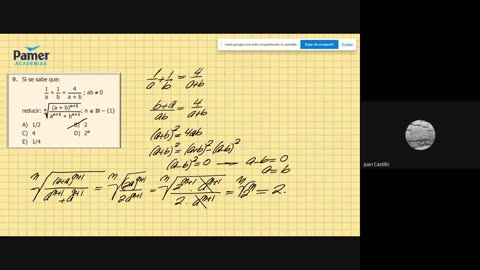 meet.google.com está compartiendo tu pantalla.
Dejar de compartir
Ocultar
Pamer
ACADEMIAS
9. Si se sabe que:
1/a + 1/b = 4/(a + b) ; ab ≠ 0
reducir: ⁿ√((a + b)ⁿ⁺¹/(aⁿ⁺¹ + bⁿ⁺¹)); n ∈ ℕ – {1}
A) 1/2 B) 2
C) 4 D) 2ⁿ
E) 1/4
1/a + 1/b = 4/(a+b)
(b+a)/ab = 4/(a+b)
(a+b)² = 4ab
(a+b)² = (a+b)² - (a-b)²
(a-b)² = 0 — a-b = 0
a = b
ⁿ√((a+a)ⁿ⁺¹/(aⁿ⁺¹ + aⁿ⁺¹)) = ⁿ√((2a)ⁿ⁺¹/2aⁿ⁺¹) = ⁿ√(2ⁿ⁺¹ · aⁿ⁺¹/2 · aⁿ⁺¹) = ⁿ√2ⁿ = 2.
Juan Castillo